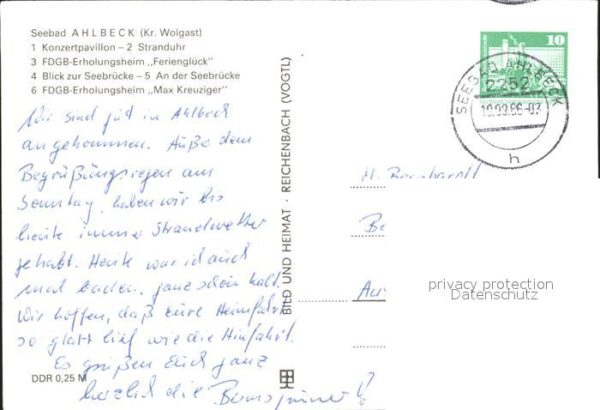 Seebad AHLBECK (Kr. Wolgast)
1 Konzertpavillon – 2 Stranduhr
3 FDGB-Erholungsheim „Ferienglück"
4 Blick zur Seebrücke – 5 An der Seebrücke
6 FDGB-Erholungsheim „Max Kreuziger"
Wir sind gut in Ahlbeck
angekommen. Außer dem
Begrüßungsregen am
Sonntag, haben wir bis
heute immer Strandwetter
gehabt. Heute war ich auch
mal baden, ganz schön kalt.
Wir hoffen, daß eure Heimfahrt
so glatt lief wie die Hinfahrt.
Es grüßen Euch ganz
herzlich die
DDR 0,25 M
BILD UND HEIMAT · REICHENBACH (VOGTL)
10
SEEBAD AHLBECK
2252
h
M. Bernhardt
Be
privacy protection
Datenschutz